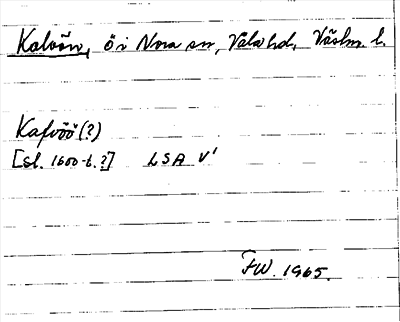 Kalvön, ö i Nora sn, Våla hd, Västm. l.
Kafvöö (?)
[sl. 1600-t. ?] LSA V1
FW. 1965.